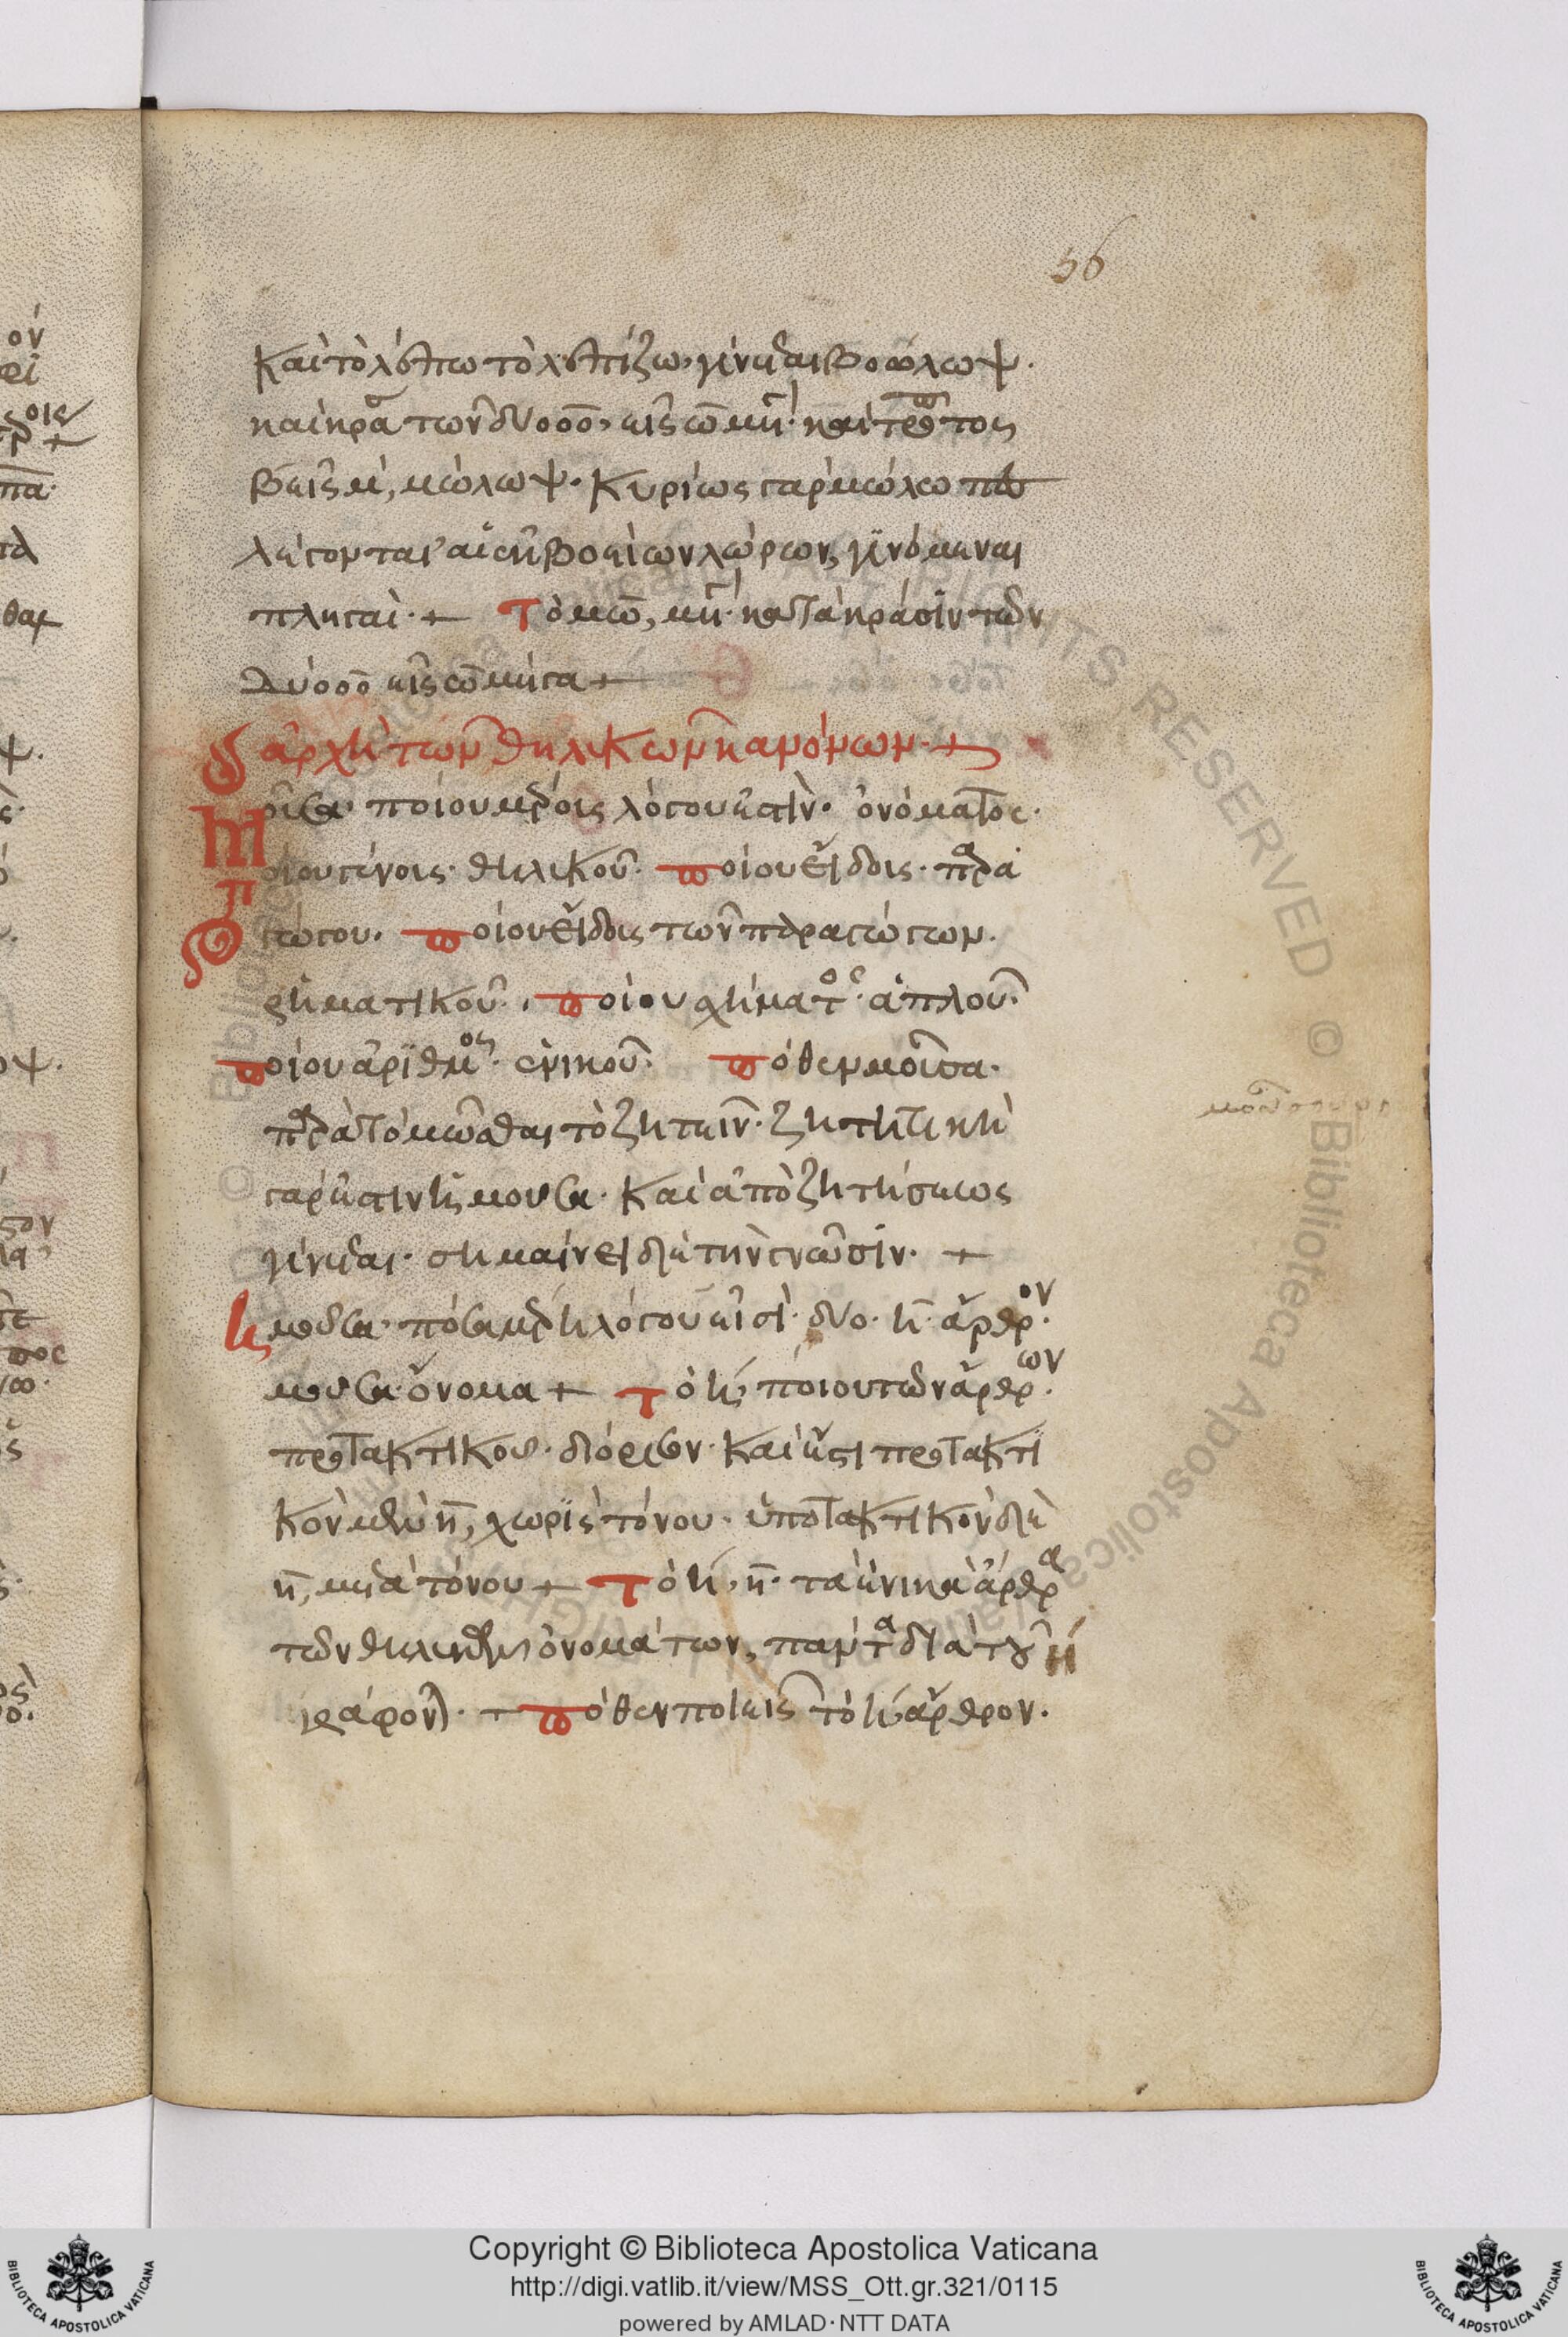 56
καὶ τὸ λέπω τὸ λεπίζω, γίνεται βοόλωψ.
καὶ κρᾶ τῶν δύο οο, εἰς ω μέγα. καὶ τροπῇ τοῦ
β εἰς μ, μώλωψ. Κυρίως γὰρ μώλωπες
λέγονται αἱ ἐκ βοείων λώρων γινόμεναι
πληγαί. + Τὸ μω, μέγα. κατὰ κρᾶσιν τῶν
δύο οο εἰς ω μέγα +
ἀρχὴ τῶν θηλικῶν κανόνων. +
Μοῦσα. ποίου μέρους λόγου ἐστίν. ὀνόματος.
Ποίου γένους. θηλικοῦ. Ποίου εἴδους. παρα
γώγου. Ποίου εἴδους τῶν παραγώγων.
ῥηματικοῦ. Ποίου σχήματος. ἁπλοῦ.
Ποίου ἀριθμοῦ. ἑνικοῦ. Πόθεν μοῦσα.
παρὰ τὸ μῶσθαι τὸ ζητεῖν. ζητητικὴ
γάρ ἐστιν ἡ μοῦσα. Καὶ ἀπὸ ζητήσεως
γίνεται. σημαίνει δὲ τὴν γνῶσιν. +
ἡ μοῦσα. πόσα μέρη λόγου εἰσί. δύο. ἡ ἄρθρον.
μοῦσα ὄνομα + Τὸ ἡ, ποίου τῶν ἄρθρων.
προτακτικοῦ. διόρισον. Καὶ ἔστι προτακτι
κὸν μὲν ἡ, χωρὶς τόνου. ὑποτακτικὸν δὲ
ἡ, μετὰ τόνου + Τὸ ἡ, η. τὰ ἑνικὰ ἄρθρα
τῶν θηλυκῶν ὀνομάτων, πάντα διὰ τοῦ η
γράφονται. + Πόθεν ποιεῖς τὸ ἡ ἄρθρον.
BIBLIOTECA APOSTOLICA VATICANA
Copyright © Biblioteca Apostolica Vaticana
http://digi.vatlib.it/view/MSS_Ott.gr.321/0115
powered by AMLAD · NTT DATA
BIBLIOTECA APOSTOLICA VATICANA